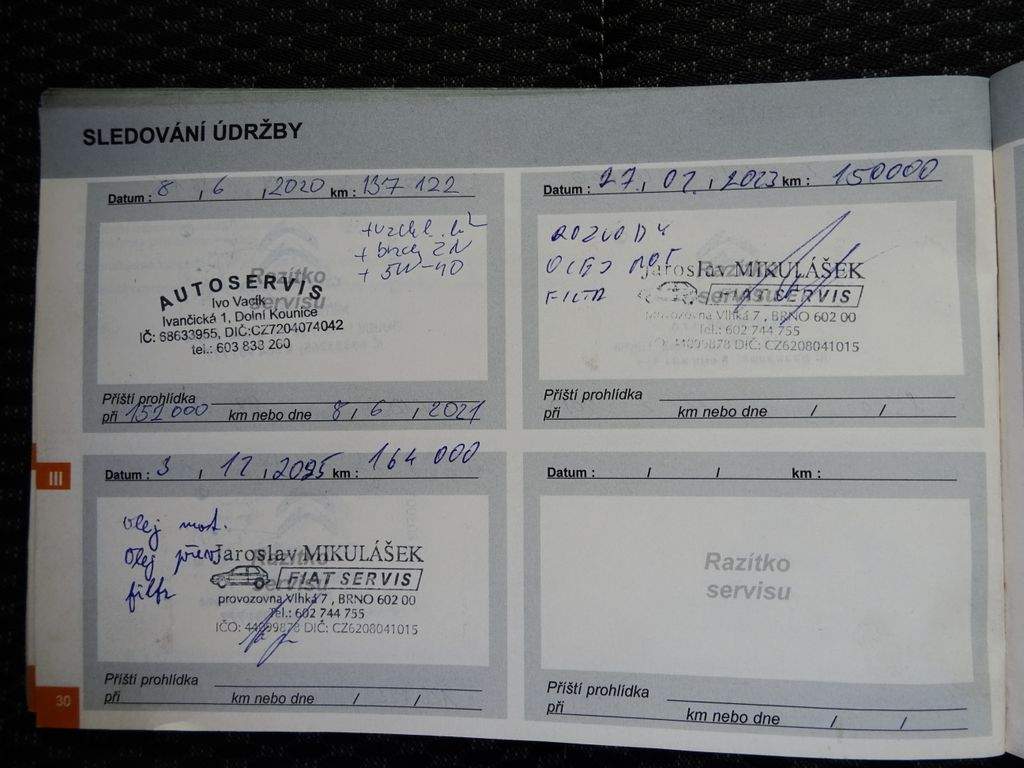 SLEDOVÁNÍ ÚDRŽBY
Datum : 8 , 6 , 2020 km : 137 122
+ 5W-40
Razítko
servisu
AUTOSERVIS
Ivo Vacík
Ivančická 1, Dolní Kounice
IČ: 68633955, DIČ:CZ7204074042
tel.: 603 838 200
Příští prohlídka
při 152 000 km nebo dne 8 , 6 , 2021
Datum : 27 , 02 , 2023 km : 150000
ROZVODY
OLEJ MOT
FILTR
Razítko
servisu
Jaroslav MIKULÁŠEK
FIAT SERVIS
provozovna Vlhká 7 , BRNO 602 00
Tel.: 602 744 755
IČO: 44099878 DIČ: CZ6208041015
Příští prohlídka
při km nebo dne / /
III
Datum : 3 / 12 , 2025 km : 164 000
olej mot.
Olej přev.
filtr
Razítko
servisu
Jaroslav MIKULÁŠEK
FIAT SERVIS
provozovna Vlhká 7 , BRNO 602 00
Tel.: 602 744 755
IČO: 44099878 DIČ: CZ6208041015
Příští prohlídka
při km nebo dne / /
Datum : / / km :
Razítko
servisu
Příští prohlídka
při km nebo dne / /
30